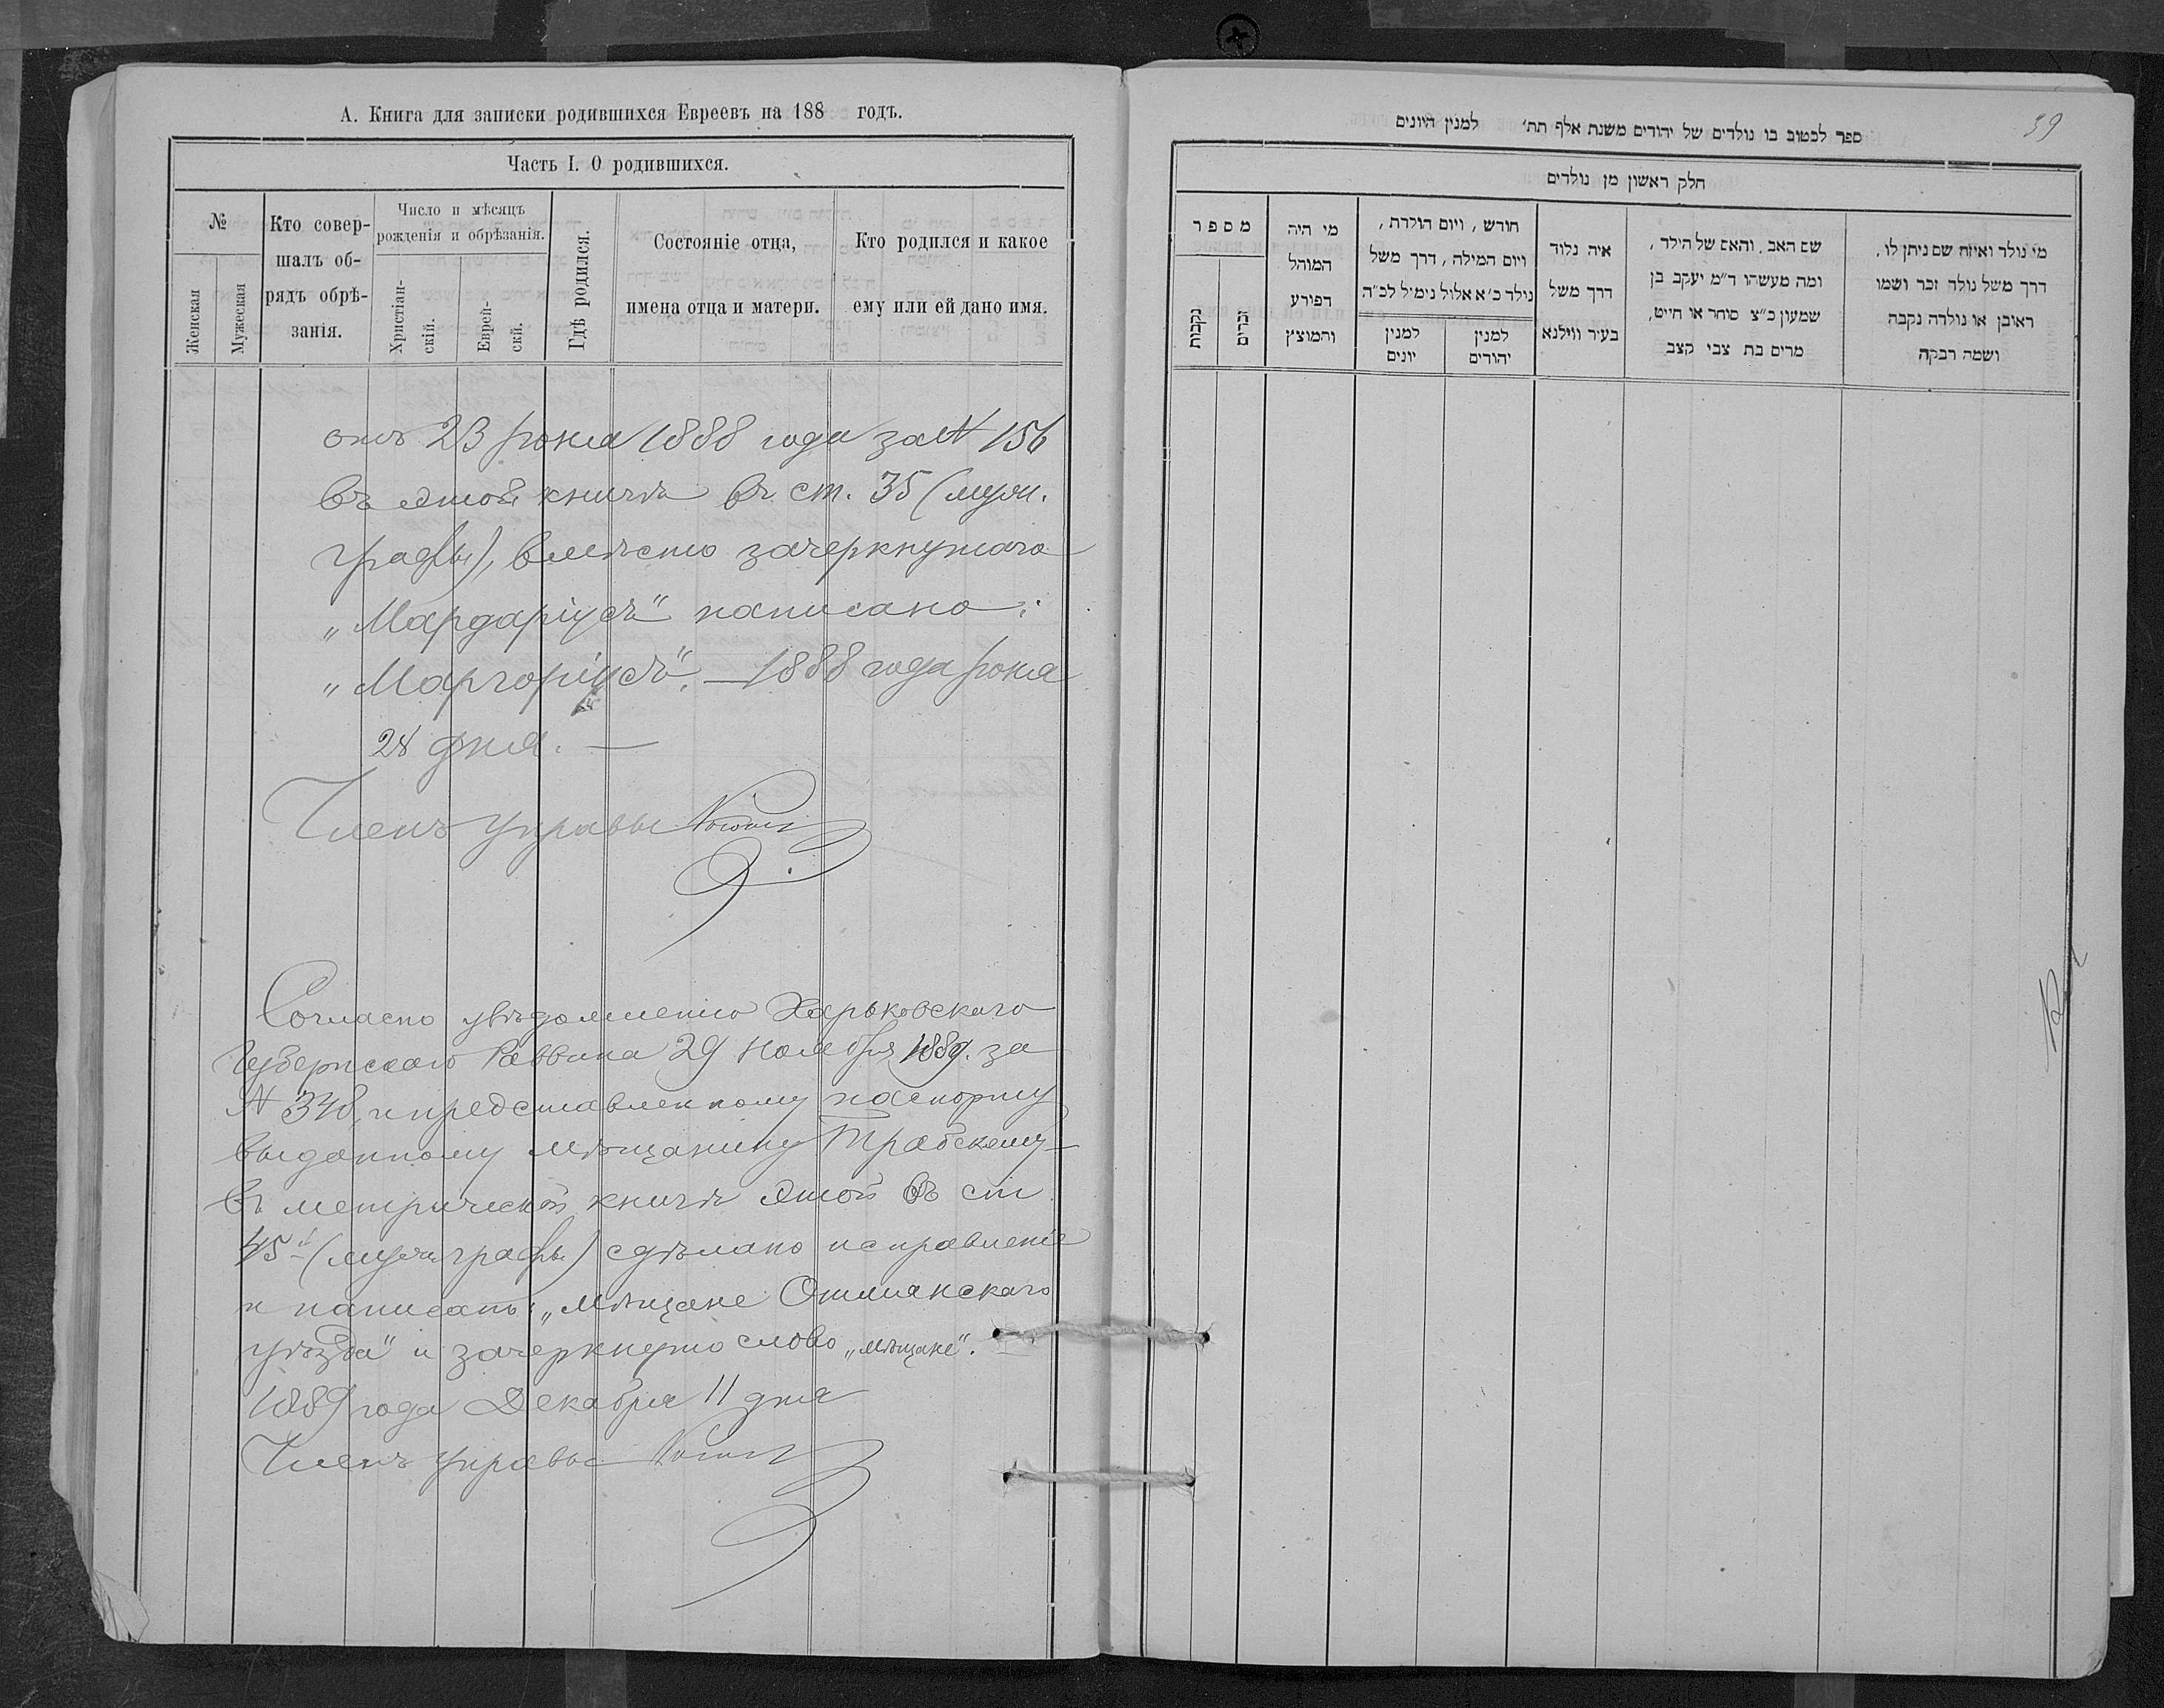 А. Книга для записки родившихся Евреевъ на 188 годъ.
Часть I. О родившихся.
№
Женская
Мужеская
Кто совер-
шалъ об-
рядъ обрѣ-
занія.
Число и мѣсяцъ
рожденія и обрѣзанія.
Христіан-
скій.
Еврей-
скій.
Гдѣ родился.
Состояніе отца,
имена отца и матери.
Кто родился и какое
ему или ей дано имя.
отъ 23 Іюня 1888 года за № 156
въ этой книгѣ въ ст. 35 (муж.
графы), вмѣсто зачеркнутаго
„Мардаріусъ“ написано:
„Маргоріусъ“. — 1888 года Іюня
28 дня. —
Членъ управы
Согласно увѣдомленію Харьковскаго
Губернскаго Раввина 29 Ноября 1889. за
№ 348, и представленному паспорту
выданному мѣщанину Трабскому
въ метрической книгѣ этой въ ст.
45й (муж. графы) сдѣлано исправленіе
и написано: „мѣщане Ошмянскаго
уѣзда“ и зачеркнуто слово „мѣщане“.
1889 года Декабря 11 дня
Членъ управы
39
ספר לכטוב בו נולדים של יהודים משנת אלף תת׳ למנין היונים
חלק ראשון מן נולדים
מספר
נקבות
זכרים
מי היה
המוהל
הפורע
והמוצץ
חורש, ויום הולדת,
ויום המילה, דרך משל
נולד כ׳א אלול נימיל לכ״ה
למנין
יונים
למנין
יהודים
איה נלוד
דרך משל
בעיר ווילנא
שם האב, והאם של הילד,
ומה מעשהו ד״מ יעקב בן
שמעון כ״צ סוחר או חייט,
מרים בת צבי קצב
מי נולד ואיזה שם ניתן לו,
דרך משל נולד זכר ושמו
ראובן או נולדה נקבה
ושמה רבקה